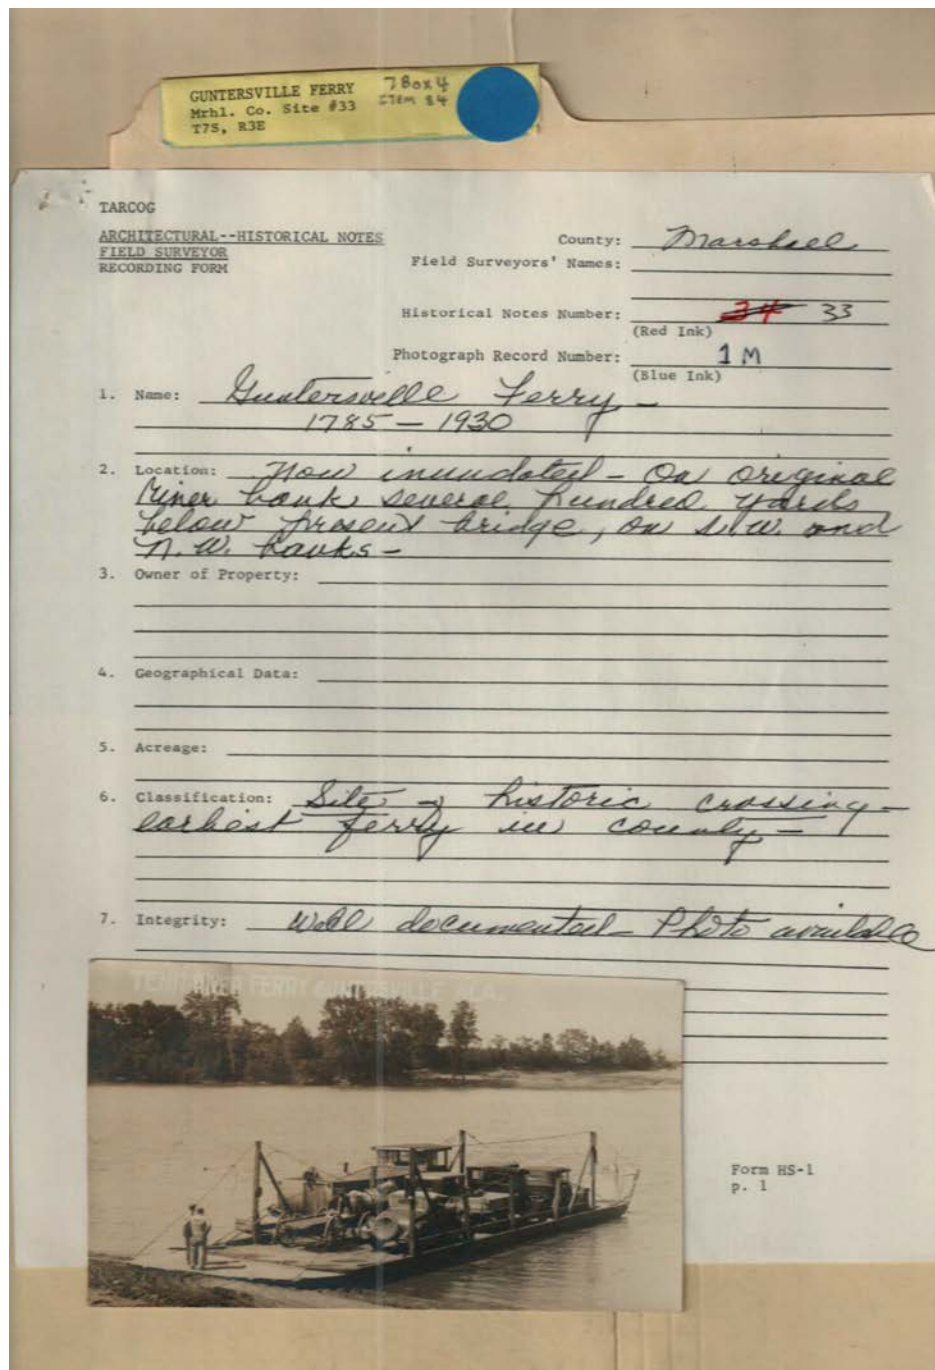 GUNTERSVILLE FERRY
Mrhl. Co. Site #33
T7S, R3E
7Box4
ITEM 84
TARCOG
ARCHITECTURAL--HISTORICAL NOTES
FIELD SURVEYOR
RECORDING FORM
County: Marshall
Field Surveyors' Names:
Historical Notes Number: 34 33
(Red Ink)
Photograph Record Number: 1 M
(Blue Ink)
1. Name: Guntersville Ferry —
1785 — 1930
2. Location: Now inundated — On original
river bank several hundred yards
below present bridge, on S.W. and
N.W. banks —
3. Owner of Property:
4. Geographical Data:
5. Acreage:
6. Classification: Site of historic crossing —
earliest ferry in county —
7. Integrity: Well documented — Photo available
TENN RIVER FERRY GUNTERSVILLE ALA.
Form HS-1
p. 1